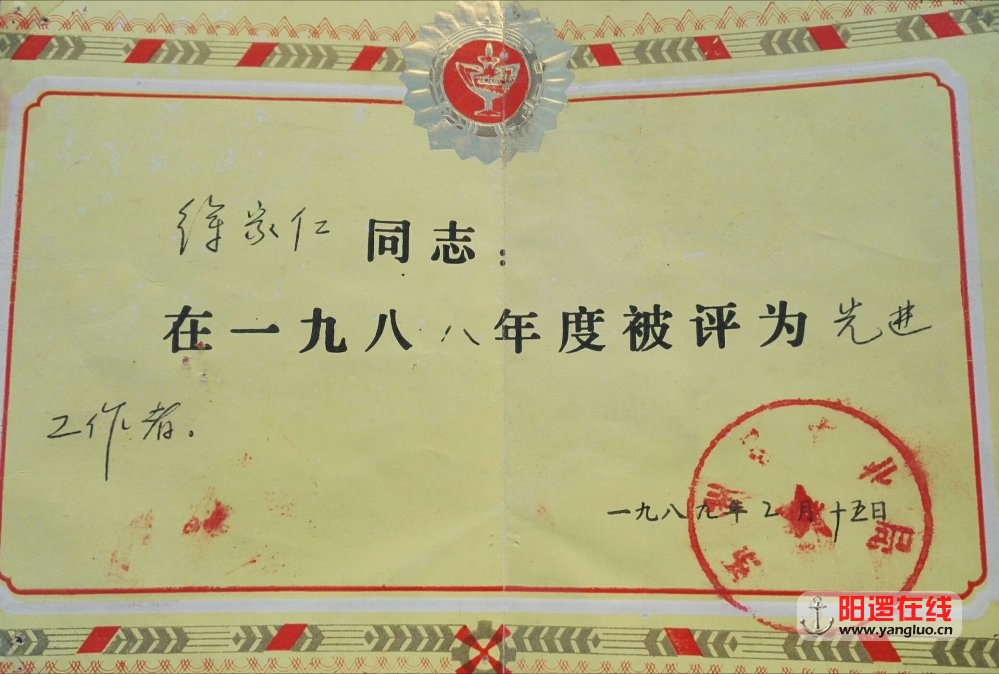 徐家仁同志：
在一九八八年度被评为先进
工作者.
一九八九年2月十五日
阳逻在线
www.yangluo.cn